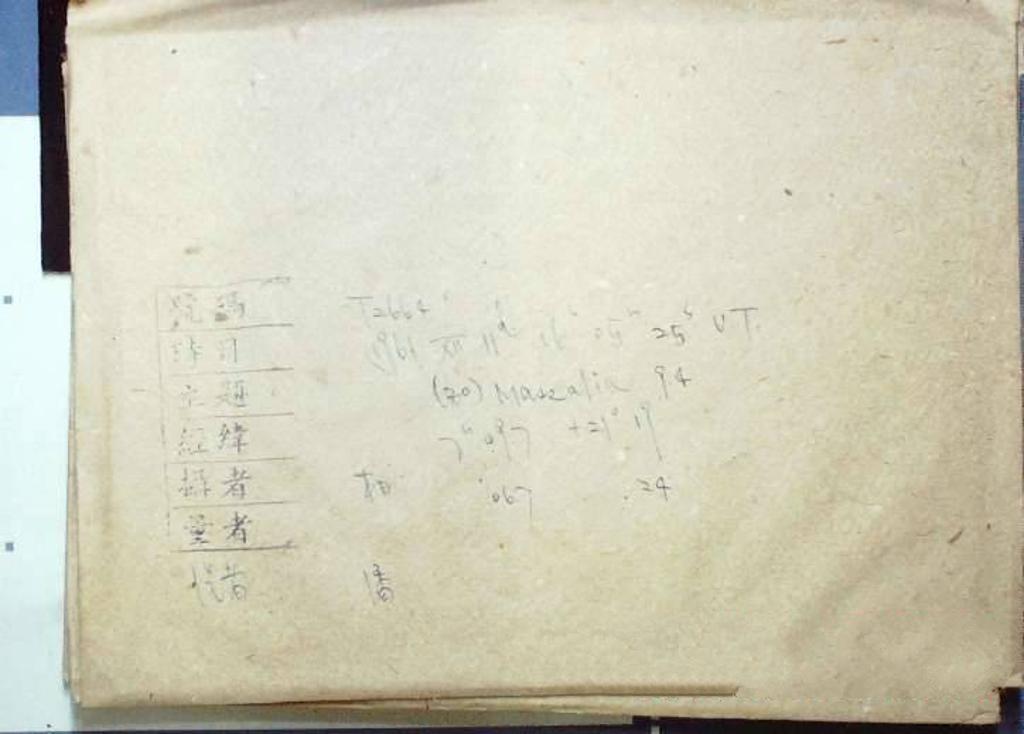 號碼 T2664
時日 1961 XII 11ᵈ 16ʰ 05ᵐ 25ˢ UT.
主題 (20) Massalia 94
經緯 7ʰ 097 +21° 19
攝者 相 067 .24
量者